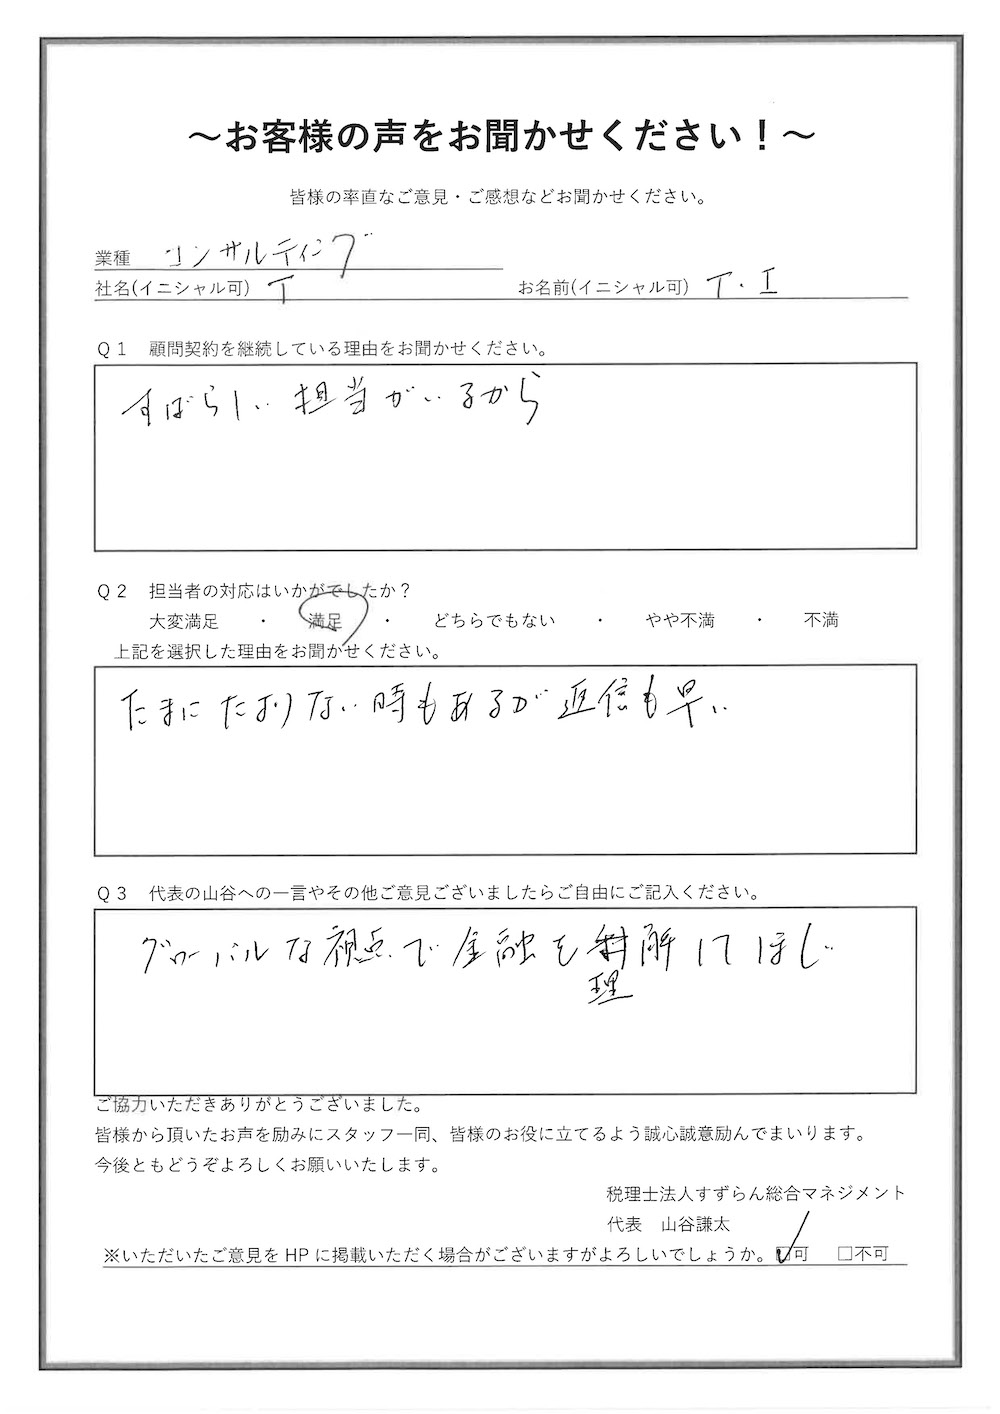 ～お客様の声をお聞かせください！～
皆様の率直なご意見・ご感想などお聞かせください。
業種 コンサルティング
社名(イニシャル可) T お名前(イニシャル可) T.I
Q1 顧問契約を継続している理由をお聞かせください。
すばらしい担当がいるから
Q2 担当者の対応はいかがでしたか？
大変満足 ・ 満足 ・ どちらでもない ・ やや不満 ・ 不満
上記を選択した理由をお聞かせください。
たまにたよりない時もあるが返信も早い
Q3 代表の山谷への一言やその他ご意見ございましたらご自由にご記入ください。
グローバルな視点で金融を解してほしい
理
ご協力いただきありがとうございました。
皆様から頂いたお声を励みにスタッフ一同、皆様のお役に立てるよう誠心誠意励んでまいります。
今後ともどうぞよろしくお願いいたします。
税理士法人すずらん総合マネジメント
代表 山谷謙太
※いただいたご意見をHPに掲載いただく場合がございますがよろしいでしょうか。☑可 □不可